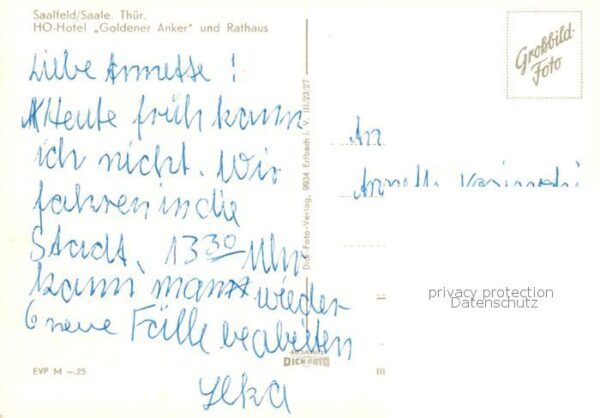 Saalfeld/Saale. Thür.
HO-Hotel „Goldener Anker" und Rathaus
Liebe Annette!
Heute früh kann
ich nicht. Wir
fahren in die
Stadt. 13 30 Uhr
kann man wieder
6 neue Fälle beabeiten
Ilka
EVP M –.25
Dick Foto-Verlag, 9934 Erlbach i. V. III/23/27
DICK FOTO
Großbild-
Foto
An
Annette
privacy protection
Datenschutz